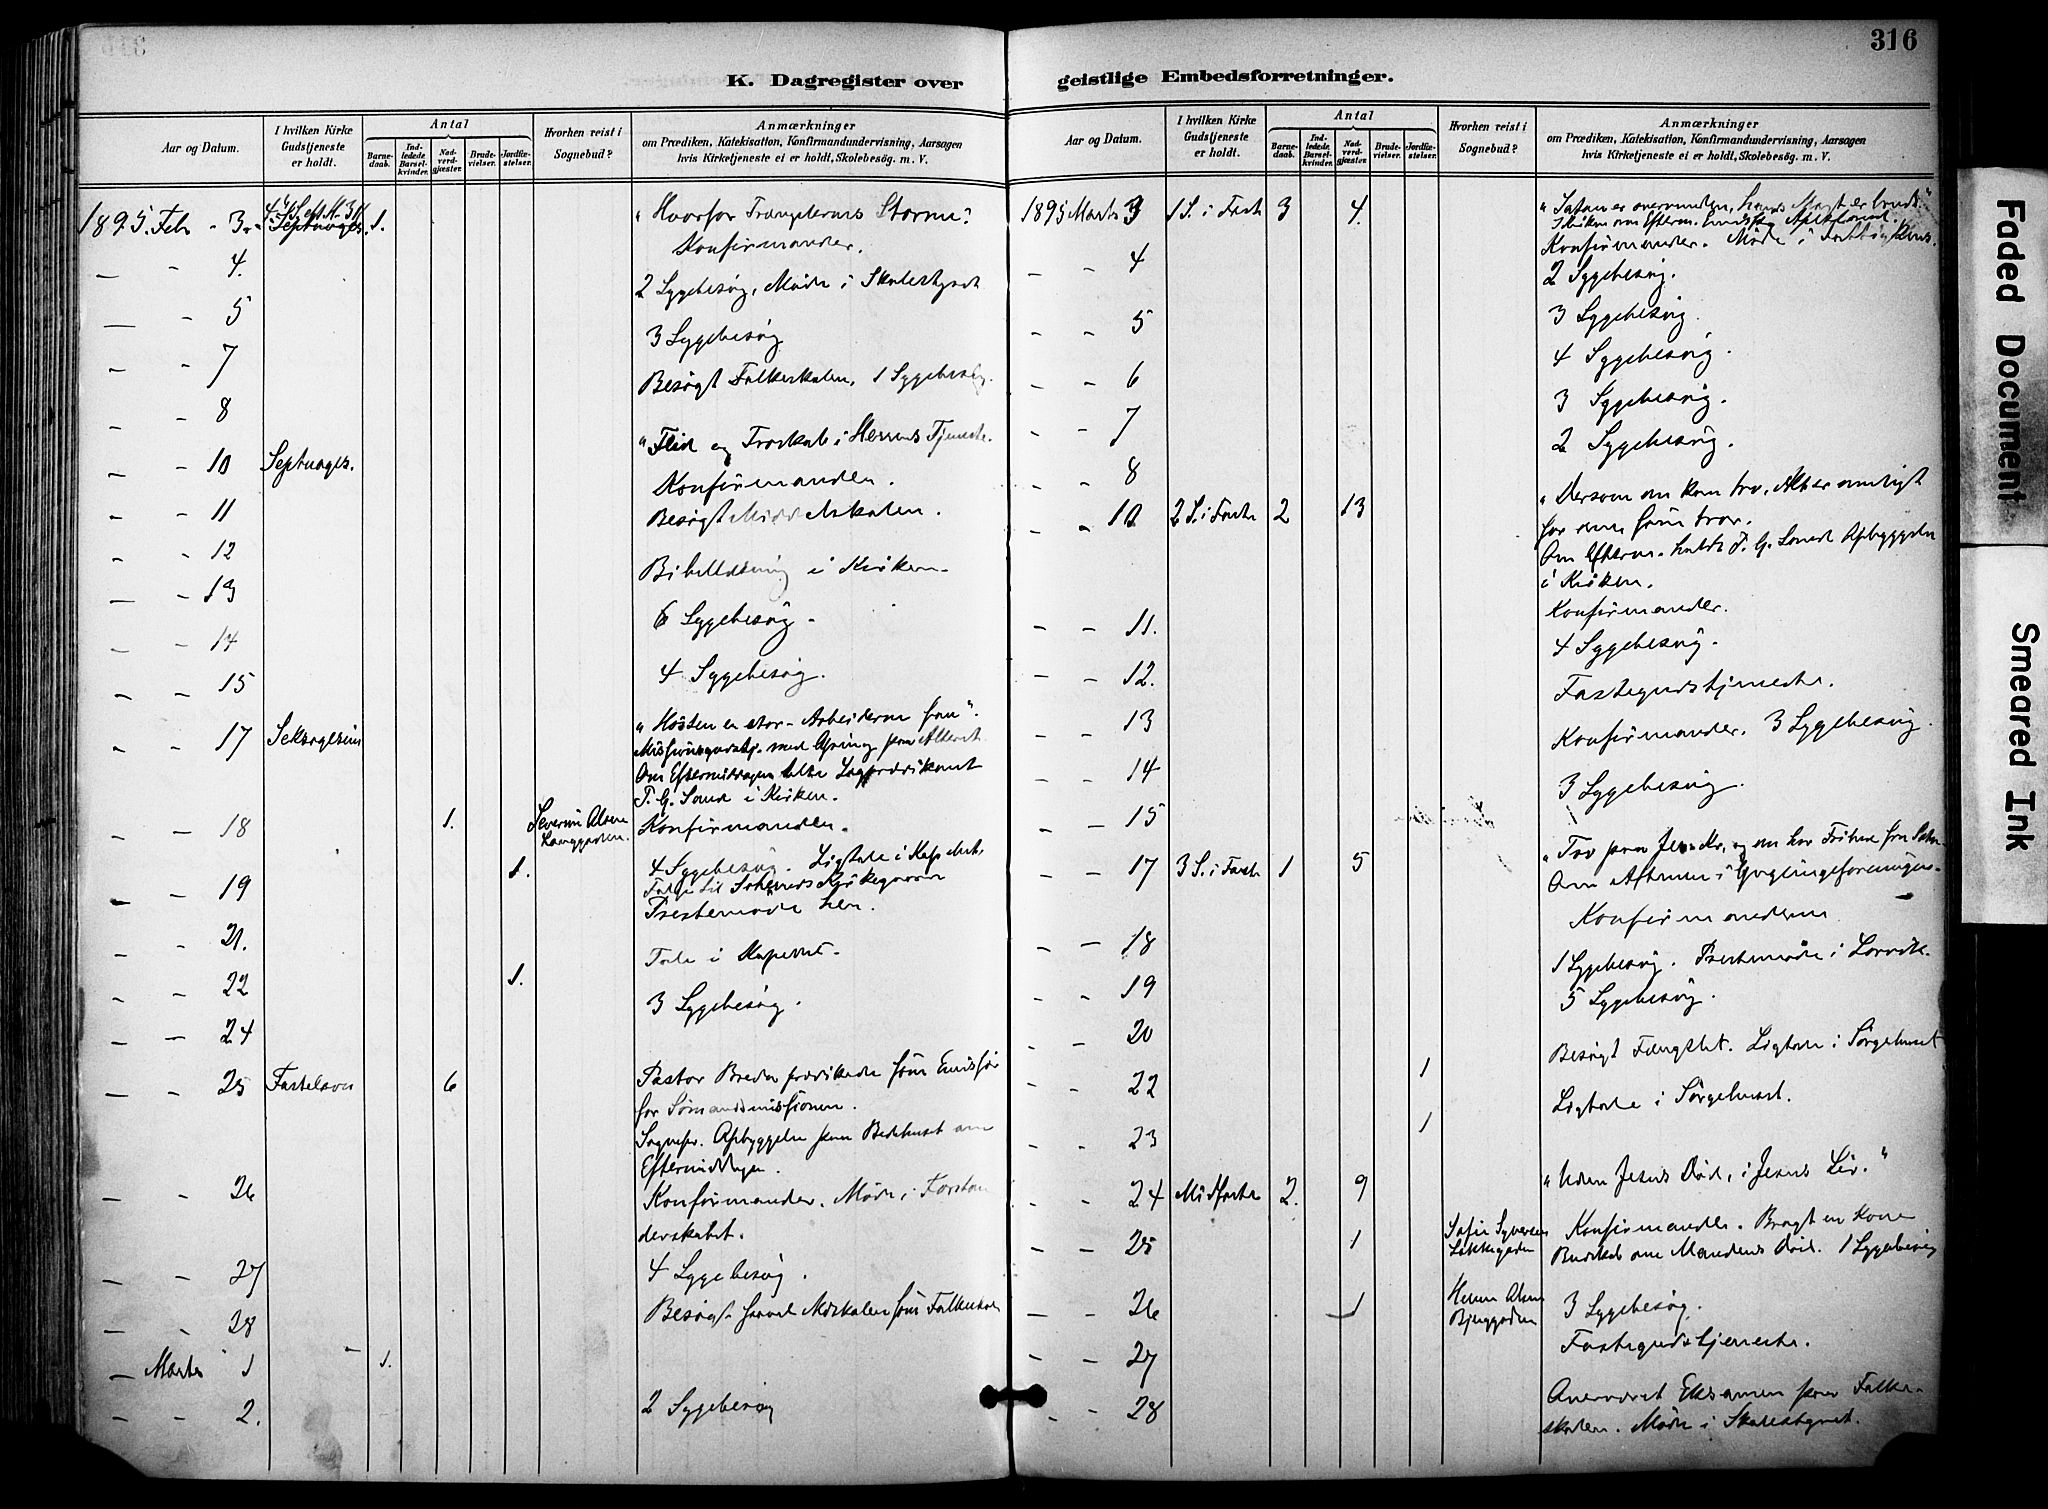 316
K. Dagregister over geistlige Embedsforretninger.
Aar og Datum.
I hvilken Kirke Gudstjeneste er holdt.
Antal
Barnedaab.
Indledede Barselkvinder.
Nadverdgjæster.
Brudevielser.
Jordfæstelser.
Hvorhen reist i Sognebud?
Anmærkninger
om Prædiken, Katekisation, Konfirmandundervisning, Aarsagen
hvis Kirketjeneste ei er holdt, Skolebesøg. m. V.
1895. Febr - 3. 1. "Hvorfor Trængslernes Storme?
Konfirmander.
— - 4. 2 Sygebesøg, Møde i Skolestyret
— - 5 3 Sygebesøg
— - 7 Besøgt Folkeskolen, 1 Sygebesøg.
— - 8
"Flid og Troskab i Herrens Tjeneste.
— - 10 Septuages.
Konfirmander.
— - 11 Besøgt Middelskolen.
— - 12 Bibellæsning i Kirken.
— - 13 6 Sygebesøg.
— - 14
— - 15 4 Sygebesøg.
— - 17 Seksagesim "Høsten er stor - Arbeiderne faa".
Om Eftermiddagen Lægprædikant
T. G. Sand i Kirken.
— - 18 1. Severin Olsen Langgaden. Konfirmander.
1. 4 Sygebesøg. Ligtale i Kapellet,
— - 19 Præstemøde her.
— - 21. Tale i Kapellet.
— - 22 1. 3 Sygebesøg.
— - 24
— - 25 Fastelavn 6 Pastor Breder prædikede som Emissær
for Sømandsmissionen.
Sognepr. Opbyggelse paa Bedehuset om
Eftermiddagen.
— - 26 Konfirmander. Møde i Forstan
derskabet.
— - 27 4 Sygebesøg.
— - 28 Besøgt
— Marts 1 1.
— - 2. 2 Sygebesøg
Aar og Datum.
I hvilken Kirke Gudstjeneste er holdt.
Antal
Barnedaab.
Indledede Barselkvinder.
Nadverdgjæster.
Brudevielser.
Jordfæstelser.
Hvorhen reist i Sognebud?
Anmærkninger
om Prædiken, Katekisation, Konfirmandundervisning, Aarsagen
hvis Kirketjeneste ei er holdt, Skolebesøg. m. V.
1895 Marts 3 1 S. i Faste 3 4. "Satan er overvunden, hans Magt er brudt."
Konfirmander. Møde i
— - 4 2 Sygebesøg.
— - 5 3 Sygebesøg.
4 Sygebesøg.
— - 6 3 Sygebesøg.
— - 7 2 Sygebesøg.
— - 8
— - 10 2 S. i Faste 2 13 "Dersom du kan tro, Alt er muligt
for den som tror.
Om Efterm. holdt T. G. Sand Opbyggelse
i Kirken.
— - 11. Konfirmander.
4 Sygebesøg.
— - 12. Fastegudstjeneste.
— - 13 Konfirmander. 3 Sygebesøg.
— - 14 3 Sygebesøg.
— - 15
— - 17 3 S. i Faste 1 5 "Tro paa
Om Aftenen i Ynglingeforeningen.
Konfirmanderne
— - 18 1 Sygebesøg. Præstemøde i Larvik.
— - 19 5 Sygebesøg.
— - 20 Besøgt Fængslet. Ligtale i Sørgehuset
— - 22 1 Ligtale i Sørgehuset.
— - 23 1
— - 24 Midfaste 2. 9 "Uden Jesus Død, i Jesus Liv."
— - 25 1 Sofie Syversen Løkkegaden Konfirmander. Bragt en Kone
Budskab om Mandens Død. 1 Sygebesøg
— - 26 1 3 Sygebesøg.
— - 27 Fastegudstjeneste.
— - 28 Overværet Eksamen paa Folke-
skolen. Møde i Skolestyret.
Faded Document
Smeared Ink